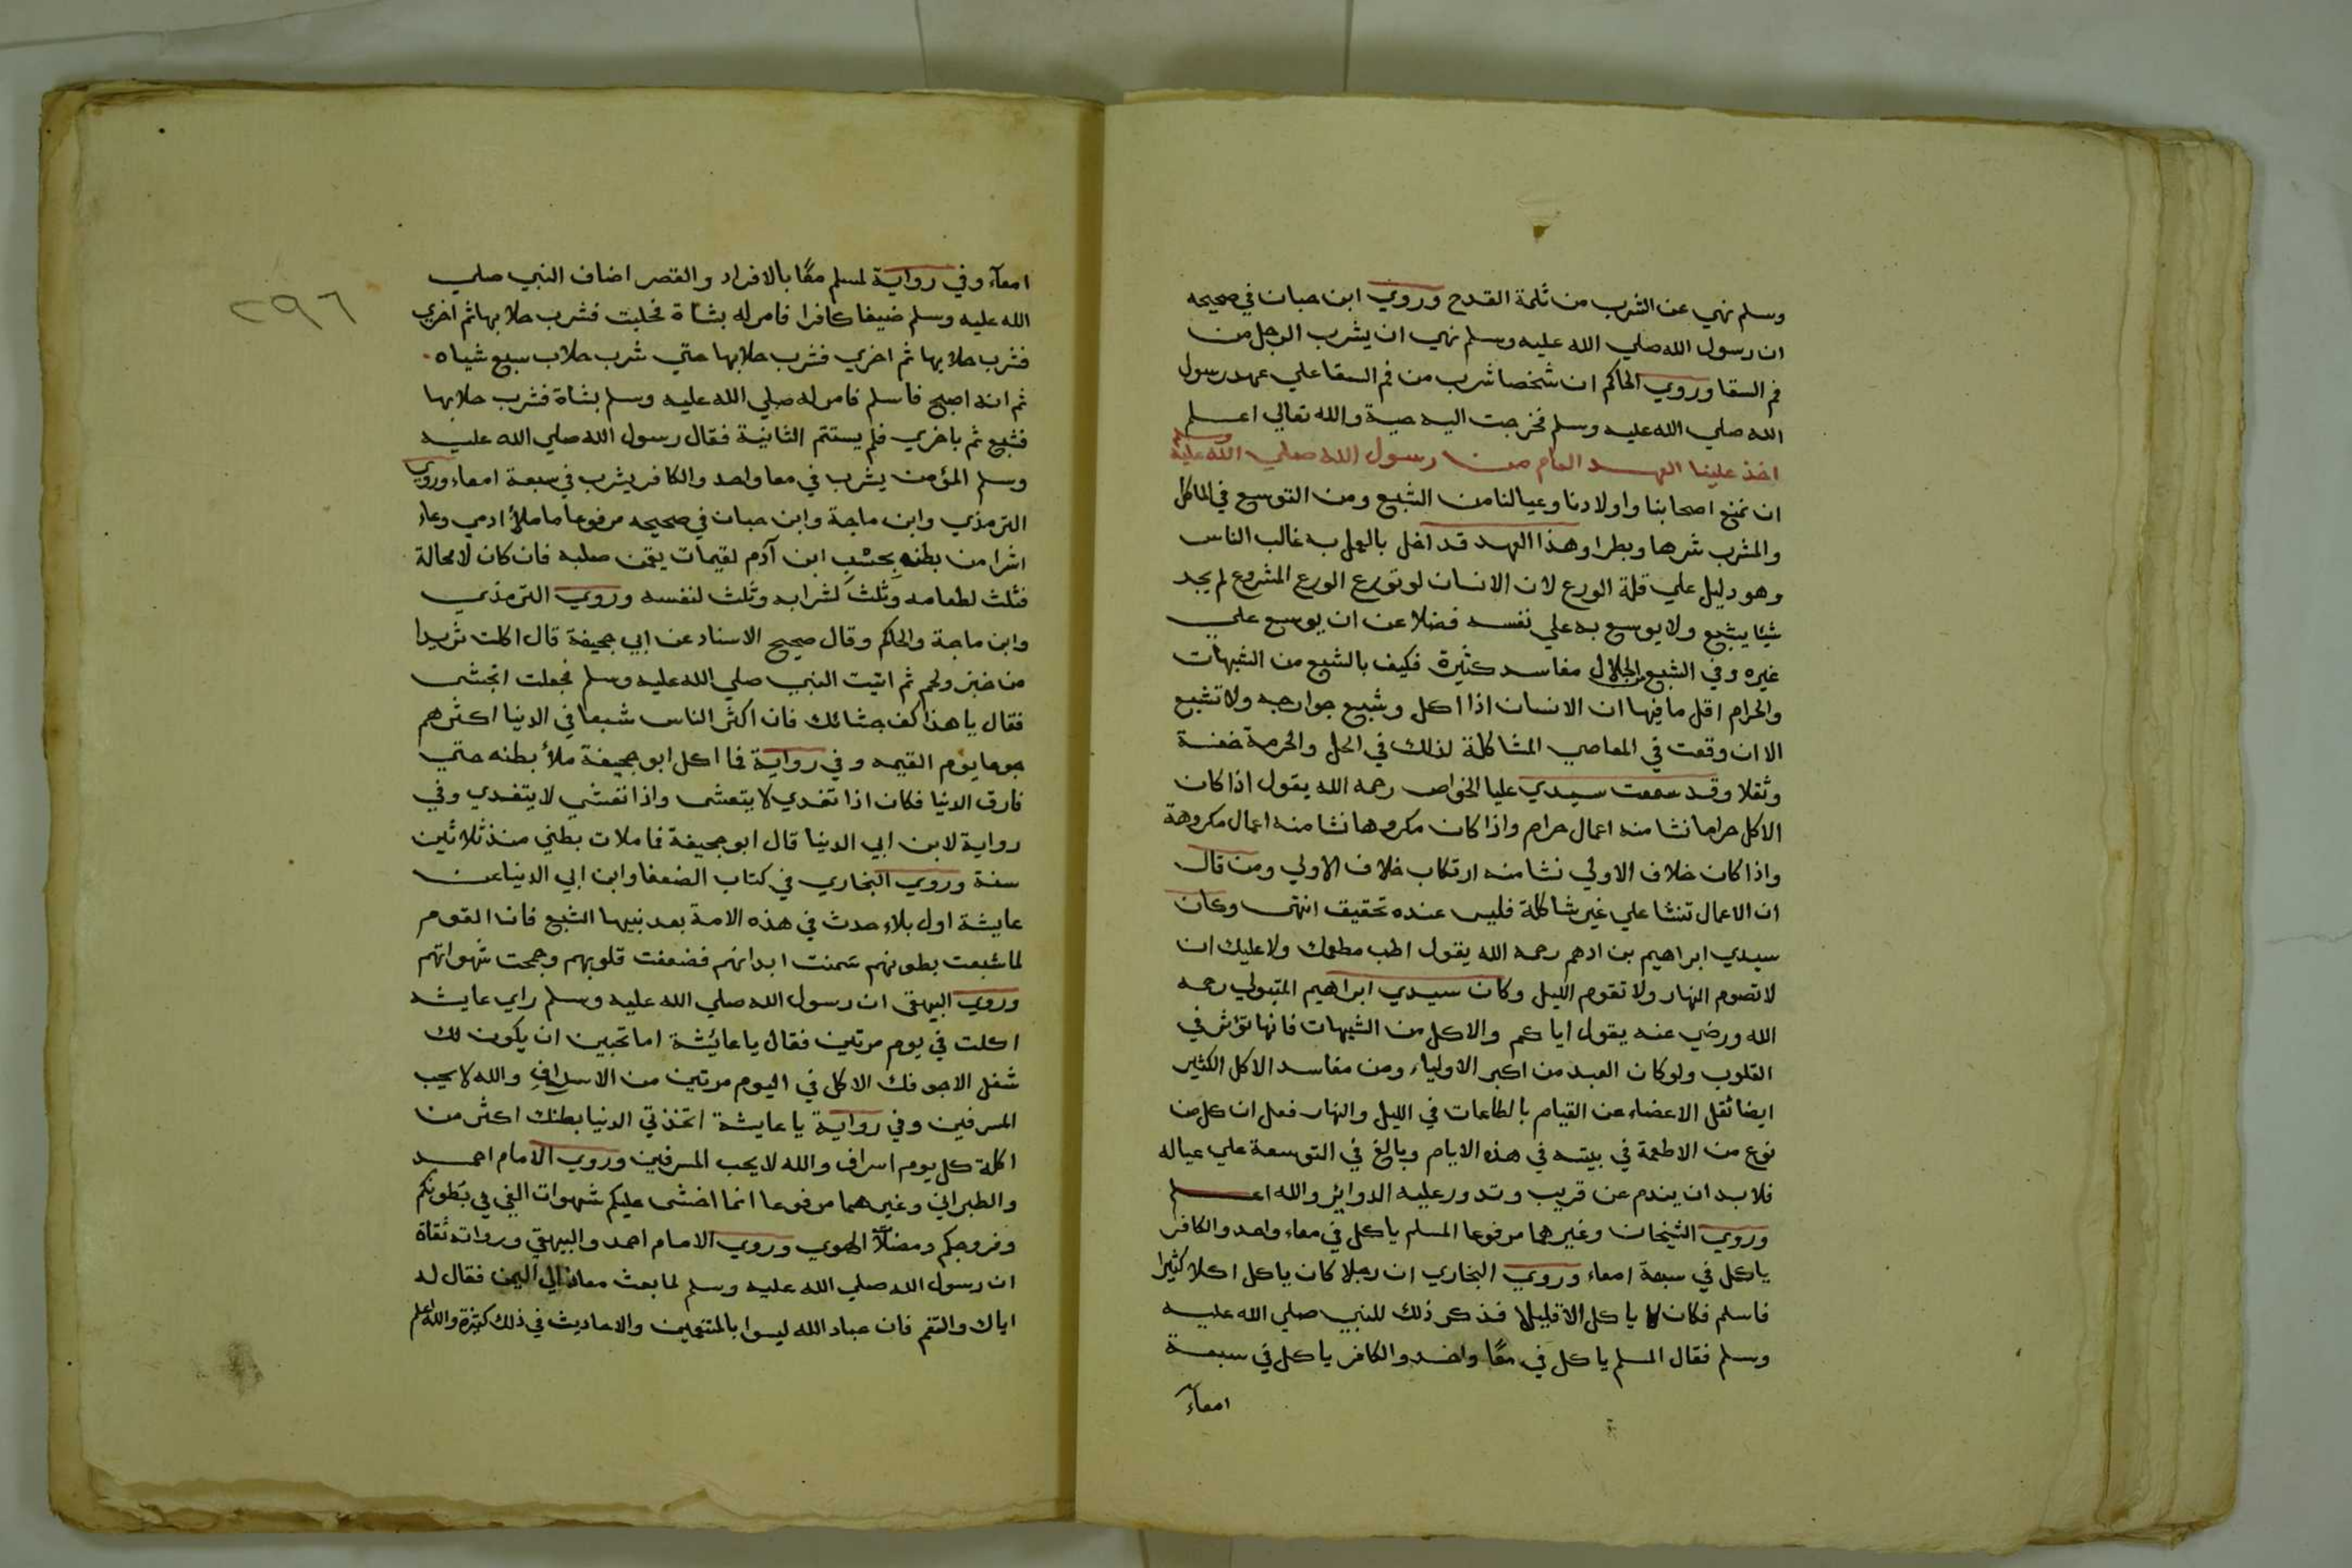 وسلم نهي عن الشرب من ثلمة القدح وروي ابن حبان في صحيحه
ان رسول الله صلي الله عليه وسلم نهي ان يشرب الرجل من
فم السقا وروي الحاكم ان شخصا شرب من فم السقا علي عهد رسول
الله صلي الله عليه وسلم فخرجت اليه حية والله تعالي اعلم
اخذ علينا العهد العام من رسول الله صلي الله عليه وسلم
ان نمنع اصحابنا واولادنا وعيالنا من الشبع ومن التوسع في الماكل
والمشرب شرها وبطرا وهذا العهد قد اخل بالعمل به غالب الناس
وهو دليل علي قلة الورع لان الانسان لو تورع الورع المشروع لم يجد
شيئا يشبع ولا يوسع به علي نفسه فضلا عن ان يوسع علي
غيره وفي الشبع من الحلال مفاسد كثيرة فكيف بالشبع من الشبهات
والحرام اقل ما فيها ان الانسان اذا اكل وشبع جوارحه ولا تشبع
الا ان وقعت في المعاصي المشاكلة لذلك في الحل والحرمة خفة
وثقلا وقد سمعت سيدي عليا الخواص رحمه الله يقول اذا كان
الاكل حراما نشا منه اعمال حرام واذا كان مكروها نشا منه اعمال مكروهة
واذا كان خلاف الاولي نشا منه ارتكاب خلاف الاولي ومن قال
ان الاعمال تنشا علي غير شاكلة فليس عنده تحقيق انتهى وكان
سيدي ابراهيم بن ادهم رحمه الله يقول اطب مطعمك ولا عليك ان
لا تصوم النهار ولا تقوم الليل وكان سيدي ابراهيم المتبولي رحمه
الله ورضي عنه يقول اياكم والاكل من الشبهات فانها تؤثر في
القلوب ولو كان العبد من اكبر الاولياء ومن مفاسد الاكل الكثير
ايضا ثقل الاعضاء عن القيام بالطاعات في الليل والنهار فعلم ان كل من
نوع من الاطعمة في بيته في هذه الايام وبالغ في التوسعة علي عياله
فلا بد ان يندم عن قريب وتدور عليه الدوائر والله اعلم
وروي الشيخان وغيرهما مرفوعا المسلم ياكل في معاء واحد والكافر
ياكل في سبعة امعاء وروي البخاري ان رجلا كان ياكل اكلا كثيرا
فاسلم فكان لا ياكل الا قليلا فذكر ذلك للنبي صلي الله عليه
وسلم فقال المسلم ياكل في معًا واحد والكافر ياكل في سبعة
امعآء
٢٩٦
امعآء وفي رواية لمسلم معًا بالافراد والقصر اضاف النبي صلي
الله عليه وسلم ضيفا كافرا فامر له بشاة فحلبت فشرب حلابها ثم اخري
فشرب حلابها ثم اخري فشرب حلابها حتي شرب حلاب سبع شياه
ثم انه اصبح فاسلم فامر له صلي الله عليه وسلم بشاة فشرب حلابها
فشبع ثم باخري فلم يستتم الثانية فقال رسول الله صلي الله عليه
وسلم المؤمن يشرب في معا واحد والكافر يشرب في سبعة امعاء وروي
الترمذي وابن ماجة وابن حبان في صحيحه مرفوعا ما ملأ ادمي وعاء
اشرا من بطنه بحسْبِ ابن آدم لقيمات يقمن صلبه فان كان لا محالة
فثلث لطعامه وثلث لشرابه وثلث لنفسه وروي الترمذي
وابن ماجة والحاكم وقال صحيح الاسناد عن ابي جحيفة قال اكلت ثريدا
من خبز ولحم ثم اتيت النبي صلي الله عليه وسلم فجعلت اتجشى
فقال يا هذا كف جشائك فان اكثر الناس شبعا في الدنيا اكثرهم
جوعا يوم القيمه وفي رواية فما اكل ابو جحيفة ملأ بطنه حتي
فارق الدنيا فكان اذا تغدي لا يتعشى واذا تعشي لا يتغدي وفي
رواية لابن ابي الدنيا قال ابو جحيفة فما ملات بطني منذ ثلاثين
سنة وروي البخاري في كتاب الضعفا وابن ابي الدنيا عن
عايشة اول بلاء حدث في هذه الامة بعد نبيها الشبع فان القوم
لما شبعت بطونهم سَمنت ابدانهم فضعفت قلوبهم وجمحت شهواتهم
وروي البيهقي ان رسول الله صلي الله عليه وسلم راي عايشه
اكلت في يوم مرتين فقال يا عائشة اما تحبين ان يكون لك
شغل الا جوفك الاكل في اليوم مرتين من الاسراف والله لا يحب
المسرفين وفي رواية يا عايشة اتخذتي الدنيا بطنك اكثر من
اكلة كل يوم اسراف والله لا يحب المسرفين وروي الامام احمد
والطبراني وغيرهما مرفوعا انما اخشى عليكم شهوات الغي في بطونكم
وفروجكم ومضلات الهوي وروي الامام احمد والبيهقي ورواته ثقاة
ان رسول الله صلي الله عليه وسلم لما بعث معاذا الي اليمن فقال له
اياك والتنعم فان عباد الله ليسوا بالمتنعمين والاحاديث في ذلك كثيرة والله اعلم